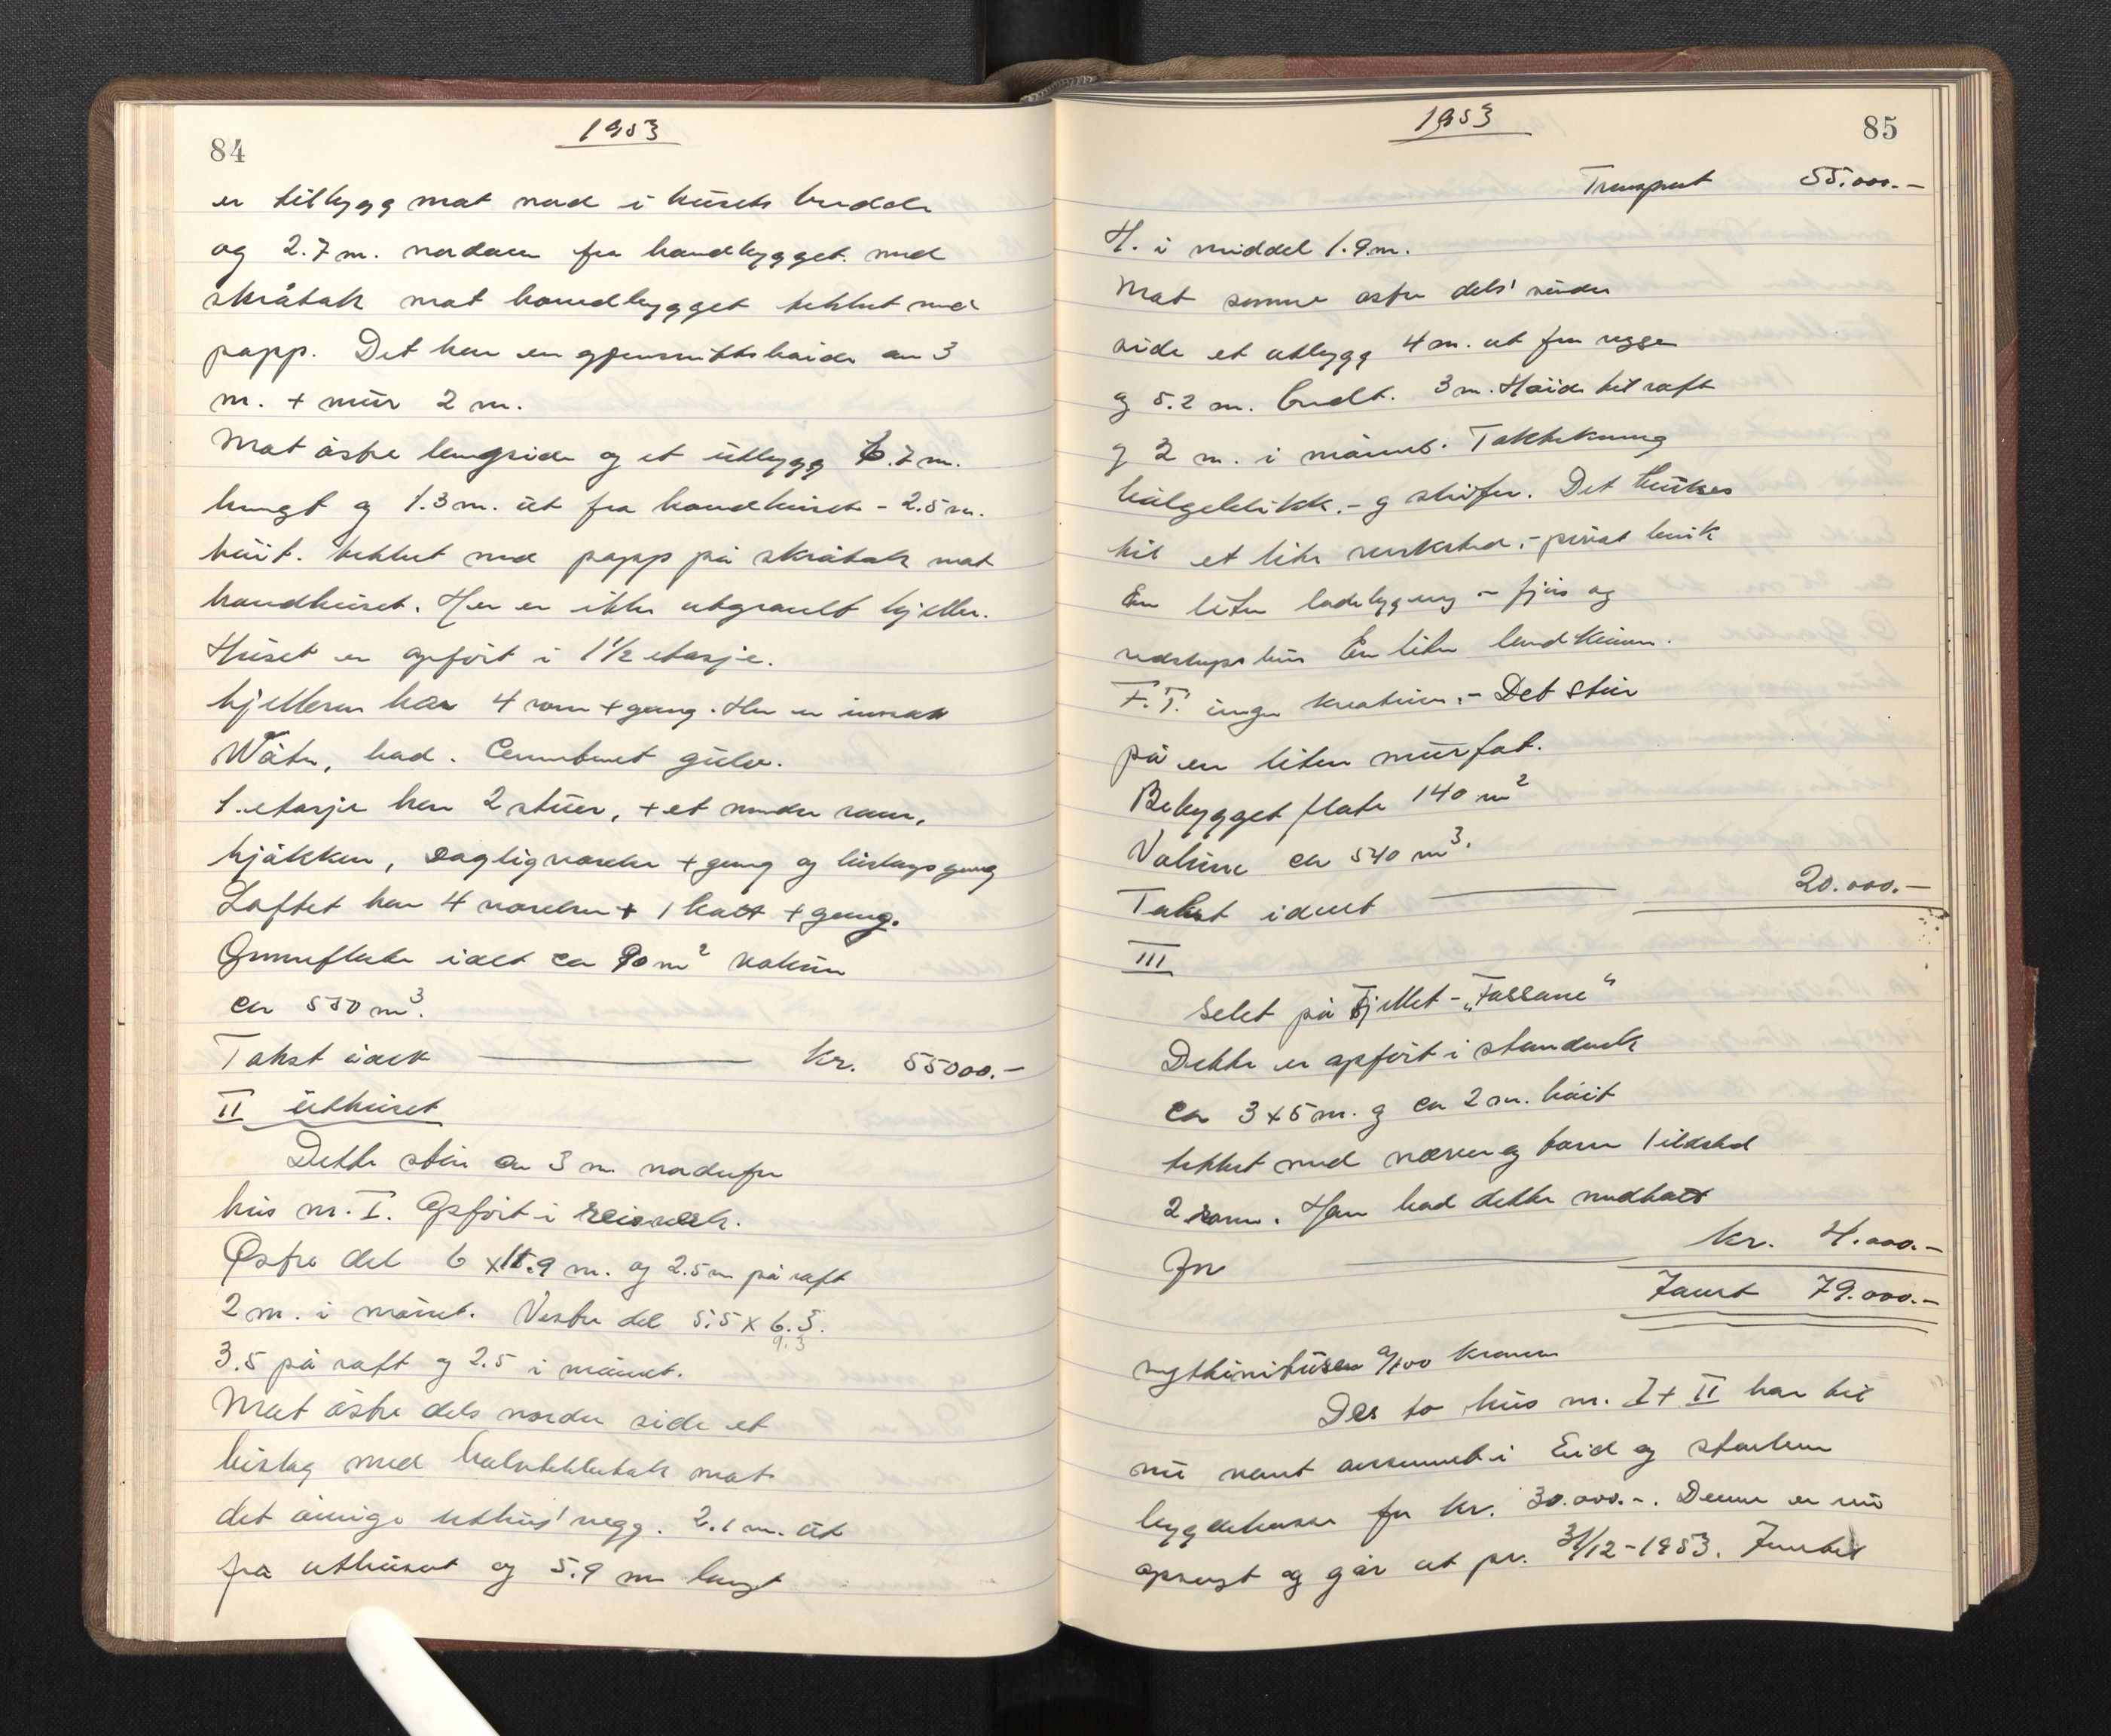 84
1953
er tilbygg mot nord i husets bredde
og 2.7 m. nordover fra hovedbygget med
skråtak mot hovedbygget tekket med
papp. Det har en gjennsnittshöide av 3
m. + mur 2 m.
Mot östre langside og et utbygg 6.7 m.
langt og 1.3 m. ut fra hovedhuset - 2.5 m.
höit. tekket med papp på skråtak mot
hovedhuset. Her er ikke utgravet kjeller.
Huset er opfört i 1½ etasje.
Kjelleren har 4 rom + gang. Her er
Vatn, bad. Cementert gulv.
1. etasje har 2 stuer, + et mindre rom,
kjökken, dagligværelse + gang og bislagsgang
Loftet har 4 værelser + 1 kott + gang.
Grunnflate ialt ca 90 m² volum
ca 550 m³.
Takst ialt kr. 55000.-
II uthuset
Dette står ca 3 m. nordenfor
hus nr. I. Opfört i reisverk.
Östre del 6 x 11.9 m. og 2.5 m på raft
2 m. i mönet. Vestre del 5.5 x 6.3.
9.3
3.5 på raft og 2.5 i mönet.
Mot östre dels nordre side et
bislag med halvtekketak mot
det övrige uthus' vegg. 2.1 m. ut
fra uthuset og 5.9 m langt
85
1953
Transport 55.000.-
H. i middel 1.9 m.
Mot samme östre dels' söndre
side et utbygg 4 m. ut fra vegge
og 5.2 m. bredt. 3 m. Höide til raft
og 2 m. i mönet. Taktekning
bölgeblikk.- og skifer. Det brukes
til et lite verksted,- privat bruk
En liten ladebygning - fjös og
redskapshus En liten landkium.
F.T. ingen kreaturer.- Det står
på en liten murfot.
Bebygget flate 140 m²
Volum ca 540 m³.
Takst ialt 20.000.-
III
Selet på Fjellet - „Fossane"
Dette er opfört i standverk
ca 3 x 5 m. og ca 2 m. höit
tekket med næver og torv 1 ildsted
2 rom. Han bad dette medtatt
for kr. 4.000.-
Ialt 79.000.-
nyttkinitusen 0/100 kroner
Des to hus nr. I + II har til
nu vært assurert i Eid og Stårheim
bygdekasse for kr. 30.000.-. Denne er nu
opsagt og går ut pr. 31/12-1953. Inntil